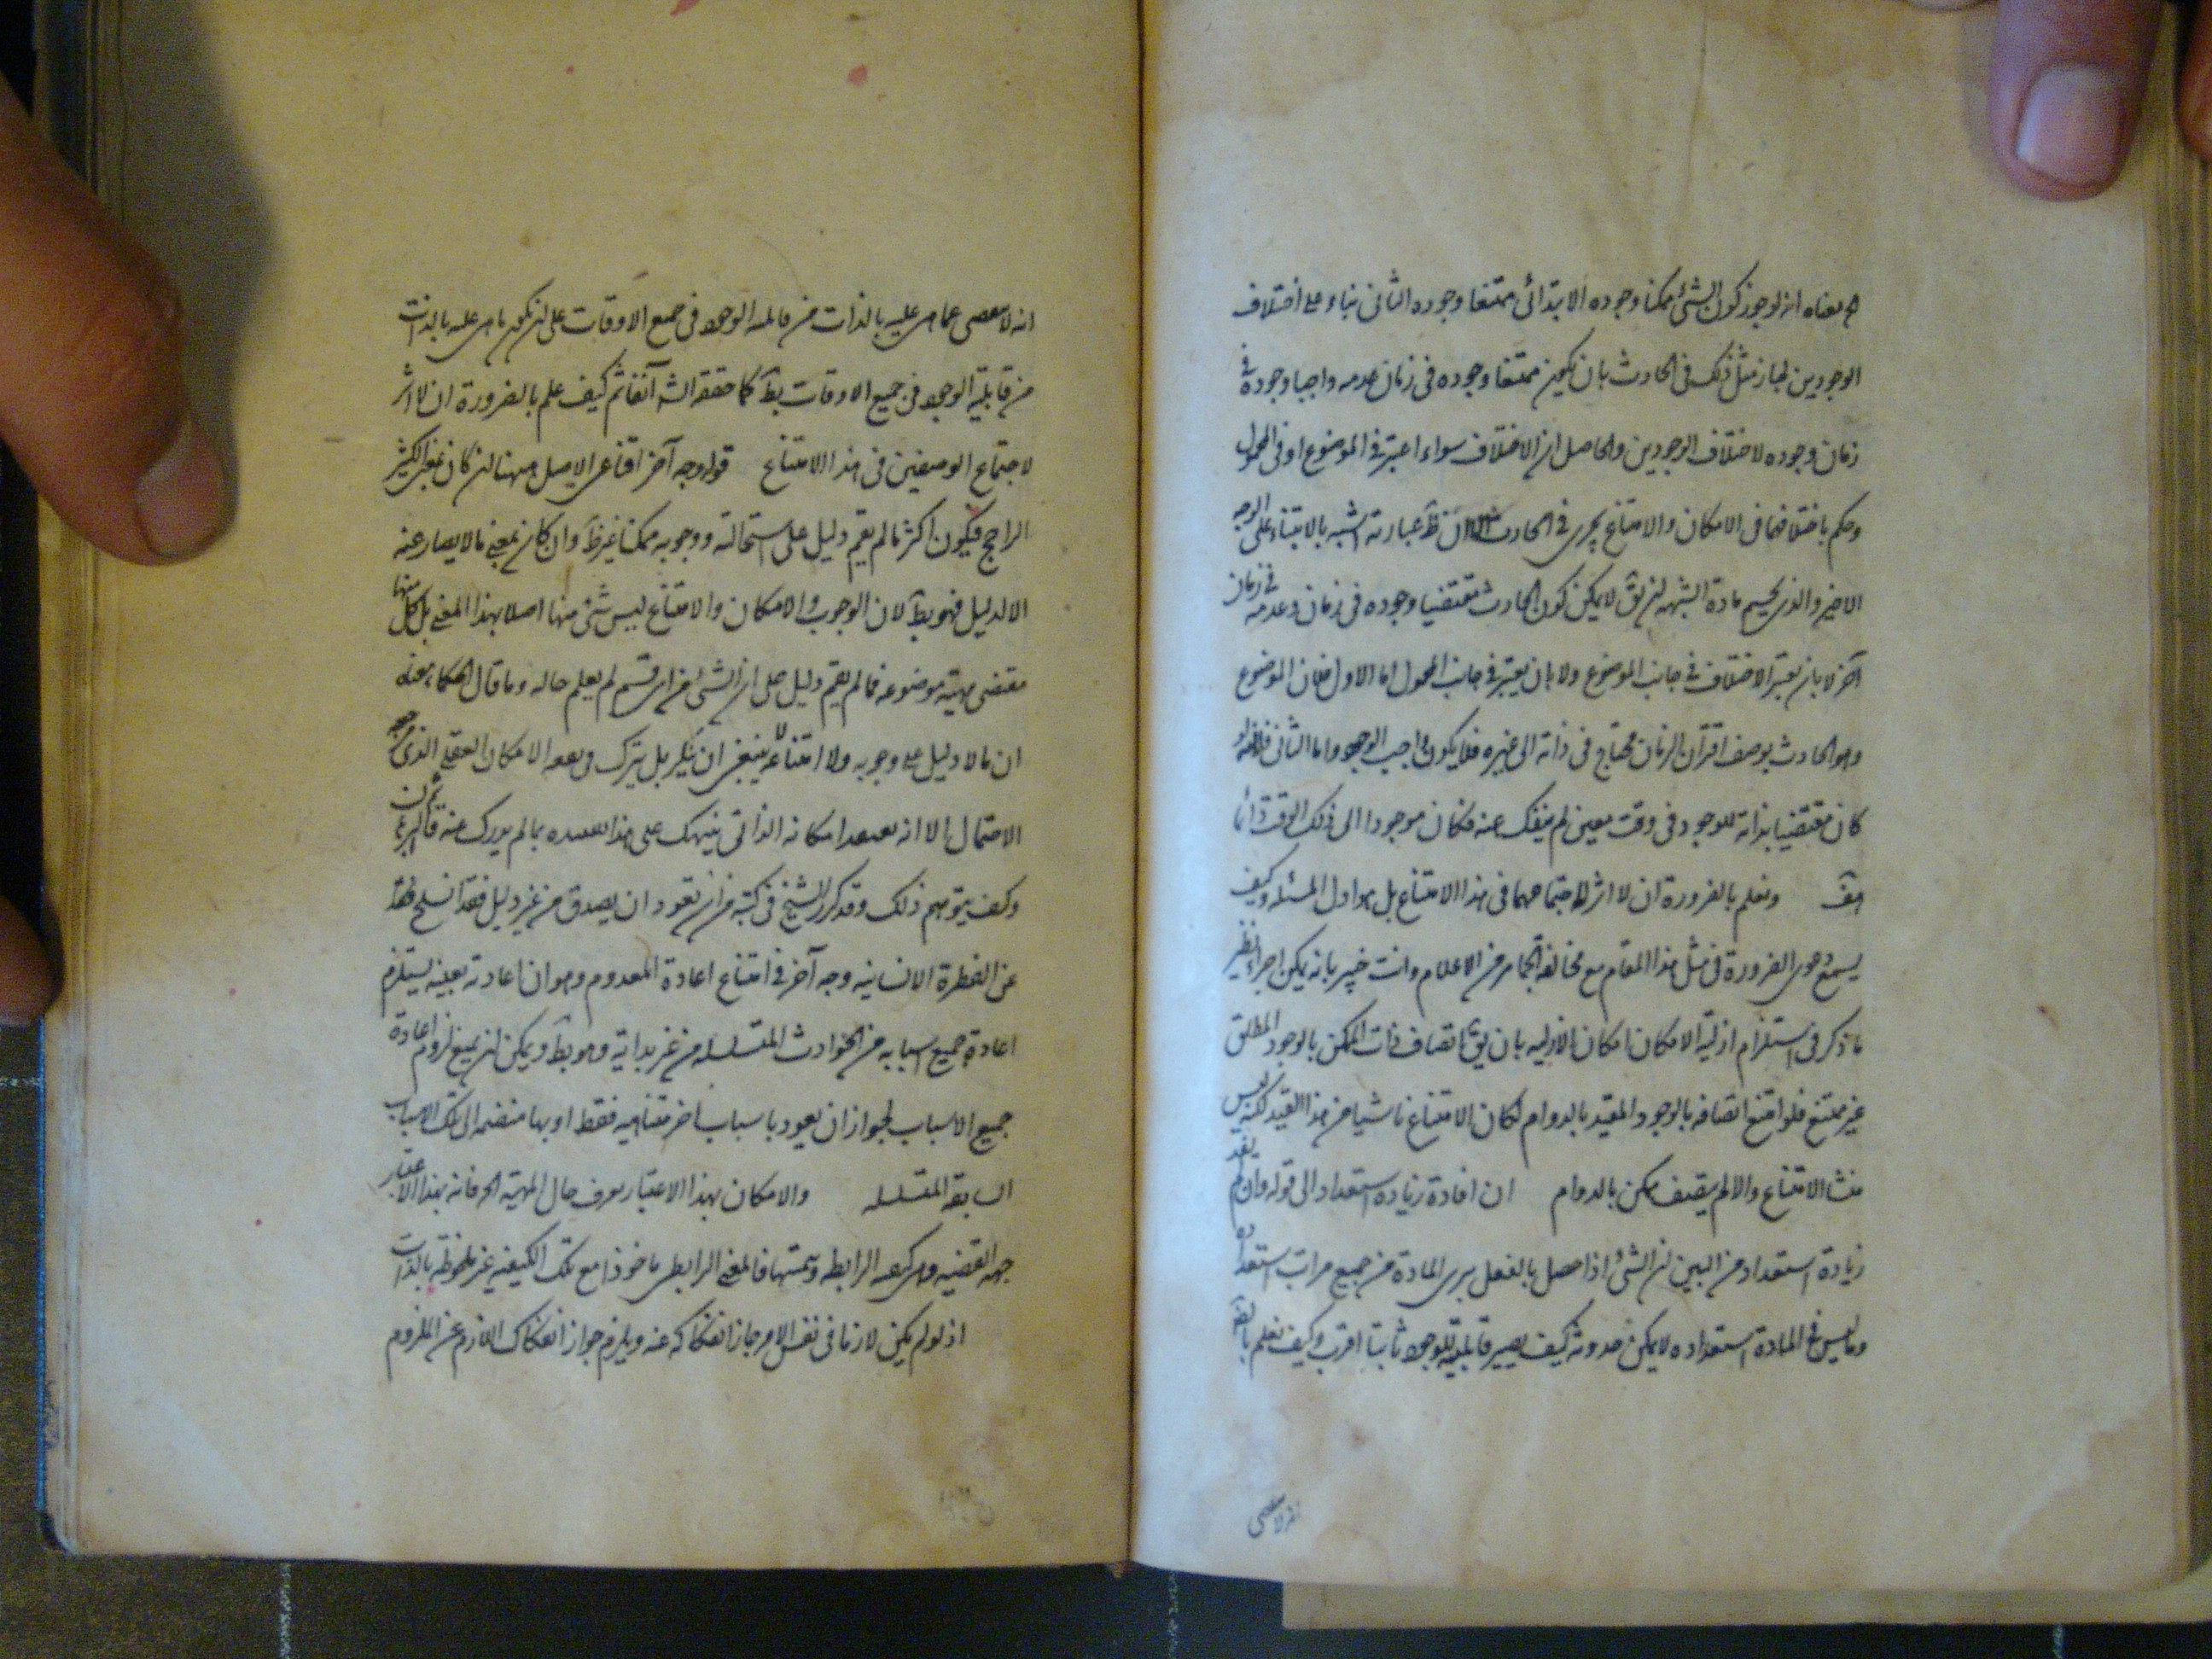 معناه انه لو جوز كون الشئ ممكنا وجوده الابتدائى ممتنعا وجوده الثانى بناء على اختلاف
الوجودين لجاز مثل ذلك فى الحادث بان يكون ممتنعا وجوده فى زمان عدمه واجبا وجوده فى
زمان وجوده لاختلاف الوجودين والحاصل ان الاختلاف سواء اعتبر فى الموضوع او فى المحمول
وحكم باختلافها فى الامكان والامتناع يجرى فى الحادث الا ان ظ عبارته اشبه بالابتناء على الوجه
الاخير والذى يحسم مادة الشبهه ان يق لا يمكن كون الحادث مقتضيا وجوده فى زمان وعدمه فى زمان
آخر لا بان يعتبر الاختلاف فى جانب الموضوع ولا بان يعتبر فى جانب المحمول اما الاول فلان الموضوع
وهو الحادث بوصف اقتران الزمان محتاج فى ذاته الى غيره فلا يكون واجب الوجود واما الثانى فلانه لو
كان مقتضيا بذاته للوجود فى وقت معين لم ينفك عنه فكان موجودا الى ذلك الوقت دائما
هف ونعلم بالضرورة ان لا اثر لاجتماعهما فى هذا الامتناع بل هو اول المسئله وكيف
يسمع دعوى الضرورة فى مثل هذا المقام مع مخالفة الجماهر من الاعلام وانت خبير بانه يمكن اجراء نظير
ما ذكر فى استلزام ازلية الامكان امكان الازليه بان يق اتصاف ذات الممكن بالوجود المطلق
غير ممتنع فلو امتنع اتصافه بالوجود المقيد بالدوام لكان الامتناع ناشيا من هذا القيد لكنه ليس
منشا الامتناع والا لم يتصف ممكن بالدوام ان افادة زيادة استعداد الى قوله وان لم يفد
زيادة استعداد من البين ان الشئ اذا حصل بالفعل برى المادة من جميع مراتب استعداده
وما ليس فى المادة استعداده لا يمكن حدوثه كيف يصير قابليته للوجود ثابتا اقرب وكيف نعلم بالضرورة
انه لا
انه لا ينقص عما هى عليه بالذات من قابلية الوجود فى جميع الاوقات على ان يكون ما هى عليه بالذات
من قابلية الوجود فى جميع الاوقات بط كما حققه الش آنفا ثم كيف علم بالضرورة ان لا اثر
لاجتماع الوصفين فى هذا الامتناع قوله وجه آخر اقناعى الاصل ههنا ان كان بمعنى الكثير
الراجح فيكون اكثر ما لم يقم دليل على استحالته ووجوبه ممكنا غير ظ وان كان بمعنى ما لا يصار عنه
الا لدليل فهو بط لان الوجوب والامكان والامتناع ليس شئ منها اصلا بهذا المعنى بل كل منها
مقتضى مهية موضوعه فما لم يقم دليل على ان الشئ من اى قسم لم يعلم حاله وما قال الحكماء معناه
ان ما لا دليل على وجوبه ولا امتناعه لا ينبغى ان ينكر بل يترك فى بقعه الامكان العقلى الذى مرجعه
الاحتمال لا انه يعتقد امكانه الذاتى ينبهك على هذا تقييده بما لم يدرك عنه قائم البرهان
وكيف يتوهم ذلك وقد كرر الشيخ فى كتبه من ان تعود ان يصدق من غير دليل فقد انسلخ
عن الفطرة الانسانيه وجه آخر فى امتناع اعادة المعدوم وهو ان اعادته بعينه يستلزم
اعادة جميع اسبابه من الحوادث المتسلسله من غير بداية وهو بط ويمكن ان يمنع لزوم اعادة
جميع الاسباب لجواز ان يعود باسباب اخر متناهيه فقط او بها منضمه الى تلك الاسباب
السابقة المتسلسله والامكان بهذا الاعتبار يعرف حال المهية الخ فانه بهذا الاعتبار
جهه القضيه وهى كيفيه الرابطه وتتمتها فالمعنى الرابطى ماخوذا مع تلك الكيفيه غير ملحوظة بالذات
اذ لو لم يكن لازما فى نفس الامر جاز انفكاكه عنه ويلزم جواز انفكاك اللازم عن الملزوم